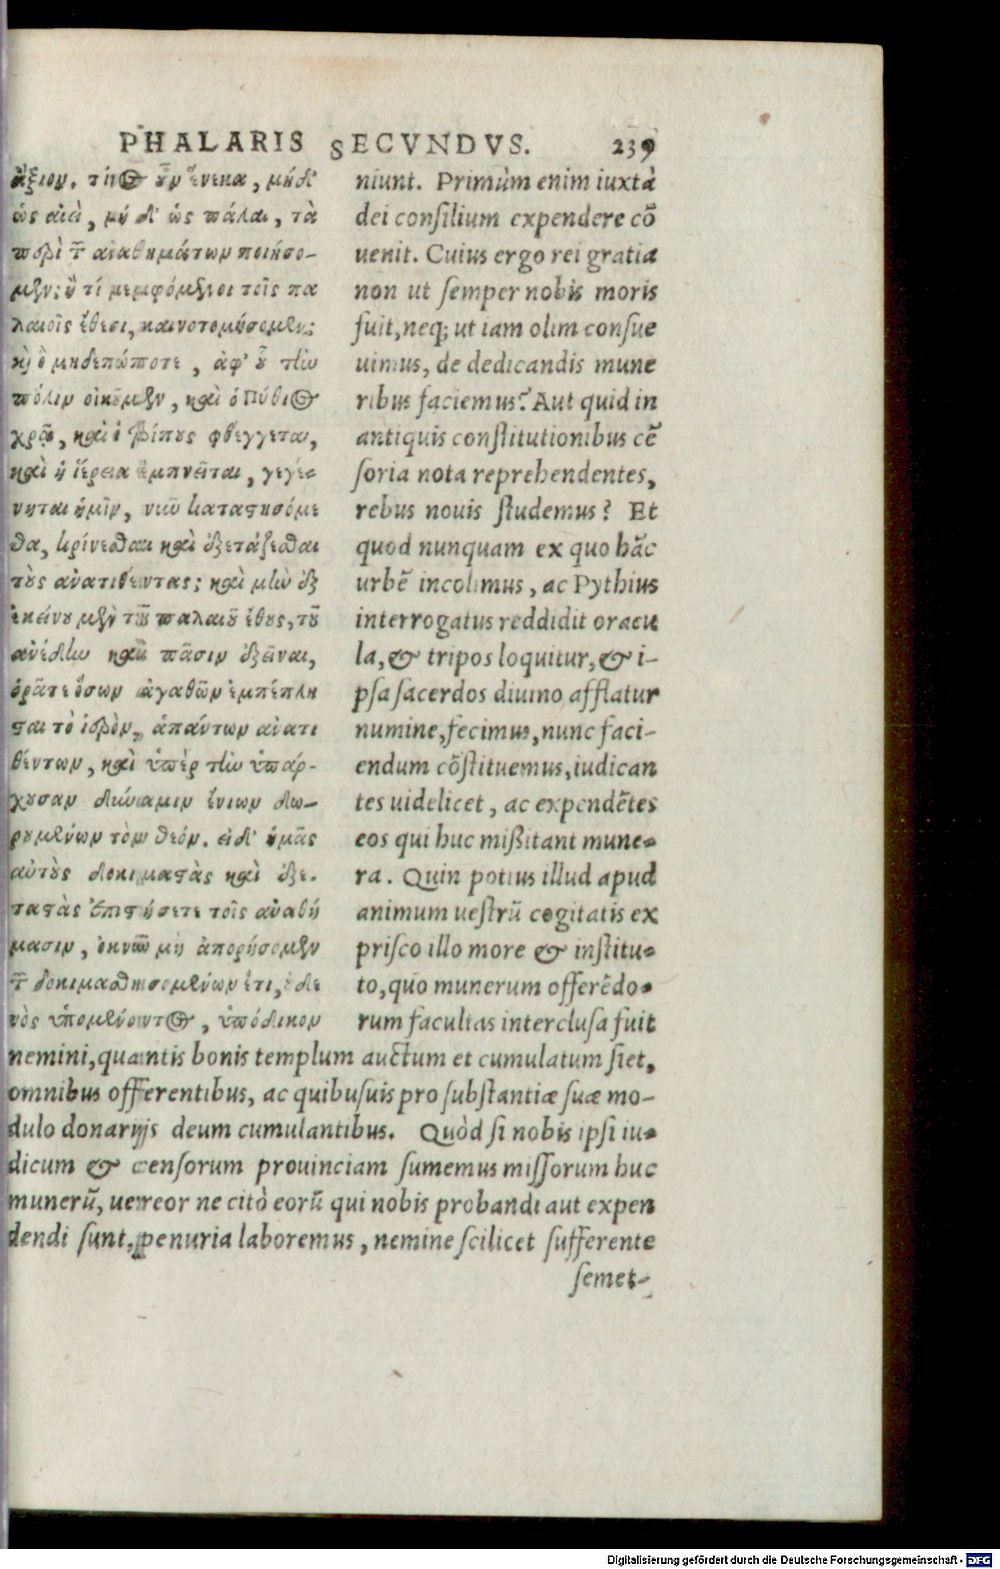 PHALARIS SECVNDVS. 239
ἄξιον. τίν⊙ οὖν ἕνεκα, μήδ'
ὡς αἰεὶ, μή δ' ὡς πάλαι, τὰ
περὶ τ͂ ἀναθημάτων ποιήσο-
μεν; ἢ τί μεμφόμενοι τοῖς πα
λαιοῖς ἔθεσι, καινοτομήσομεν;
καὶ ὃ μηδεπώποτε, ἀφ' οὗ τὴν
πόλιν οἰκοῦμεν, καὶ ὁ Πύθιος
χρᾷ, καὶ ὁ τρίπους φθέγγεται,
καὶ ἡ ἱέρεια ἐμπνεῖται, γεγέ-
νηται ἡμῖν, νῦν καταστησόμε
θα, κρίνεσθαι καὶ ἐξετάζεσθαι
τοὺς ἀνατιθέντας; καὶ μὴν ἐξ
ἐκείνου μὲν τοῦ παλαιοῦ ἔθους, τοῦ
ἀνέδην καὶ πᾶσιν ἐξεῖναι,
ὁρᾶτε ὅσων ἀγαθῶν ἐμπέπλη
σται τὸ ἱερὸν, ἁπάντων ἀνατι
θέντων, καὶ ὑπὲρ τὴν ὑπάρ-
χουσαν δύναμιν ἐνίων δω-
ρουμένων τὸν θεόν. εἰ δ' ὑμᾶς
αὐτοὺς δοκιμαστὰς καὶ ἐξε-
ταστὰς ἐπιστήσετε τοῖς ἀναθή
μασιν, ὀκνῶ μὴ ἀπορήσομεν
τ͂ δοκιμασθησομένων ἔτι, οὐδε
νὸς ὑπομένοντος, ὑπόδικον
niunt. Primùm enim iuxtà
dei consilium expendere cō
uenit. Cuius ergo rei gratia
non ut semper nobis moris
fuit, neq; ut iam olim consue
uimus, de dedicandis mune
ribus faciemus? Aut quid in
antiquis constitutionibus cē
soria nota reprehendentes,
rebus nouis studemus? Et
quod nunquam ex quo hāc
urbē incolimus, ac Pythius
interrogatus reddidit oracu
la, & tripos loquitur, & i-
psa sacerdos diuino afflatur
numine, fecimus, nunc faci-
endum cōstituemus, iudican
tes uidelicet, ac expendētes
eos qui huc mißitant mune-
ra. Quin potius illud apud
animum uestrū cogitatis ex
prisco illo more & institu-
to, quo munerum offerēdo-
rum facultas interclusa fuit
nemini, quantis bonis templum auctum et cumulatum siet,
omnibus offerentibus, ac quibusuis pro substantiæ suæ mo-
dulo donarijs deum cumulantibus. Quòd si nobis ipsi iu-
dicum & censorum prouinciam sumemus missorum huc
munerū, uereor ne citò eorū qui nobis probandi aut expen
dendi sunt, penuria laboremus, nemine scilicet sufferente
semet-
Digitalisierung gefördert durch die Deutsche Forschungsgemeinschaft - DFG